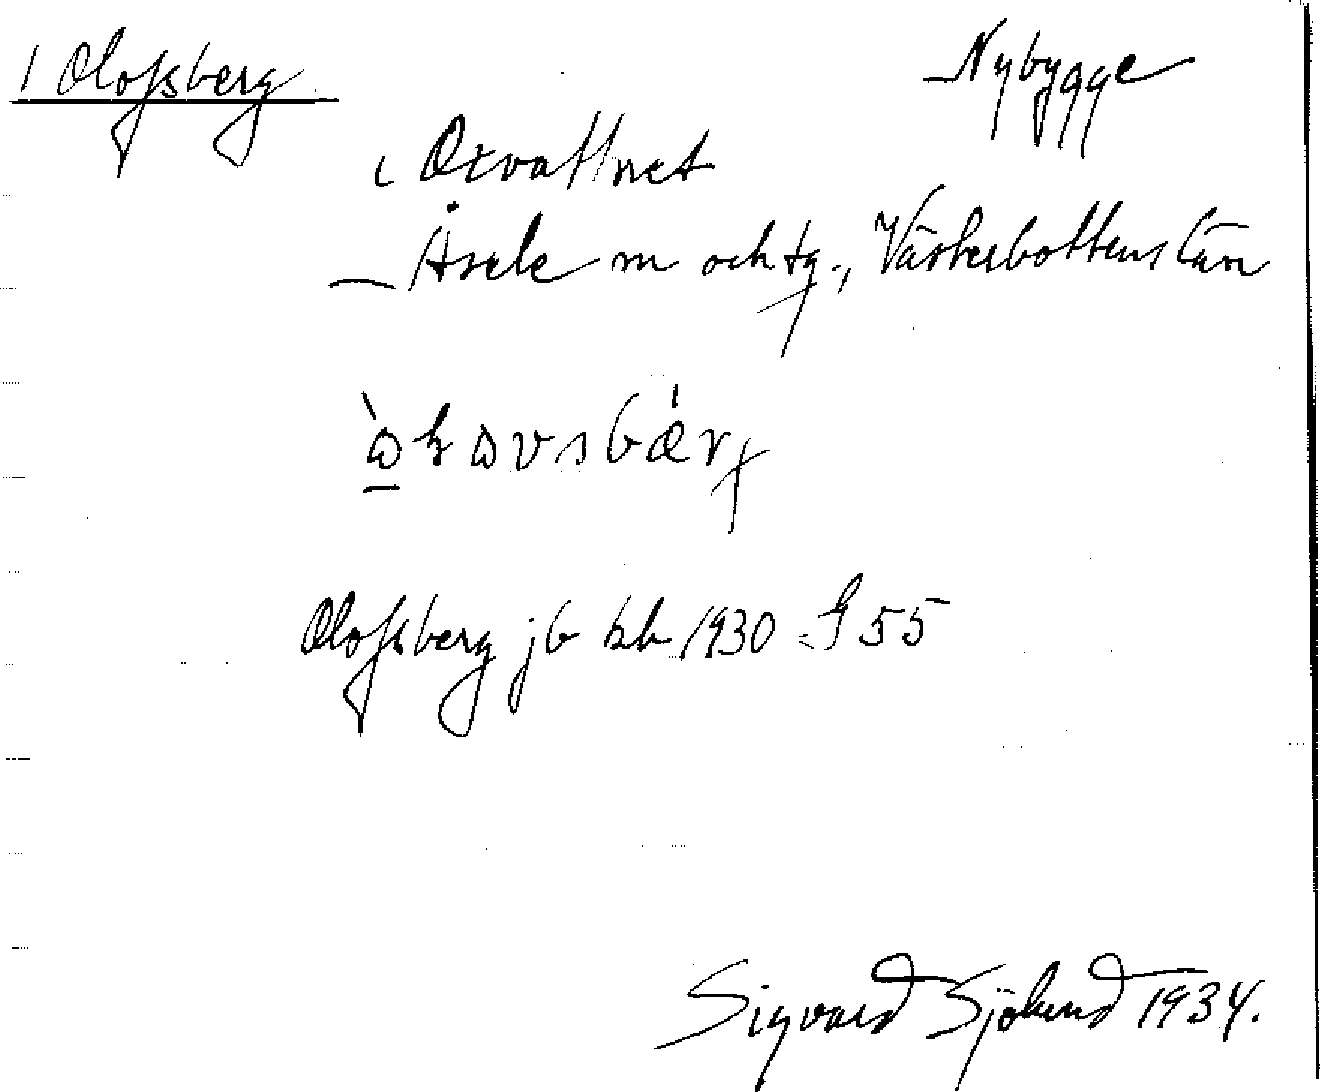 1 Olofsberg
Nybygge
i Oxvattnet
Åsele m och tg., Västerbottens län
Olofsberg jb bl. 1930 S 55
Sigvard Sjölund 1934.